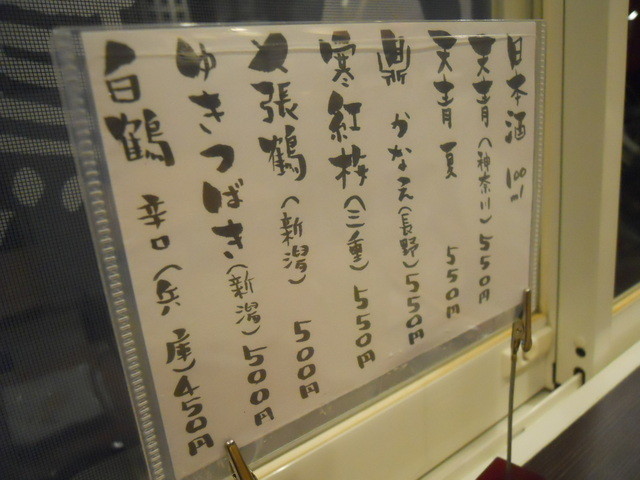 日本酒 100ml
天青(神奈川)550円
天青 夏 550円
鼎 かなえ(長野)550円
寒紅梅(三重)550円
〆張鶴(新潟)500円
ゆきつばき(新潟)500円
白鶴 辛口(兵庫)450円